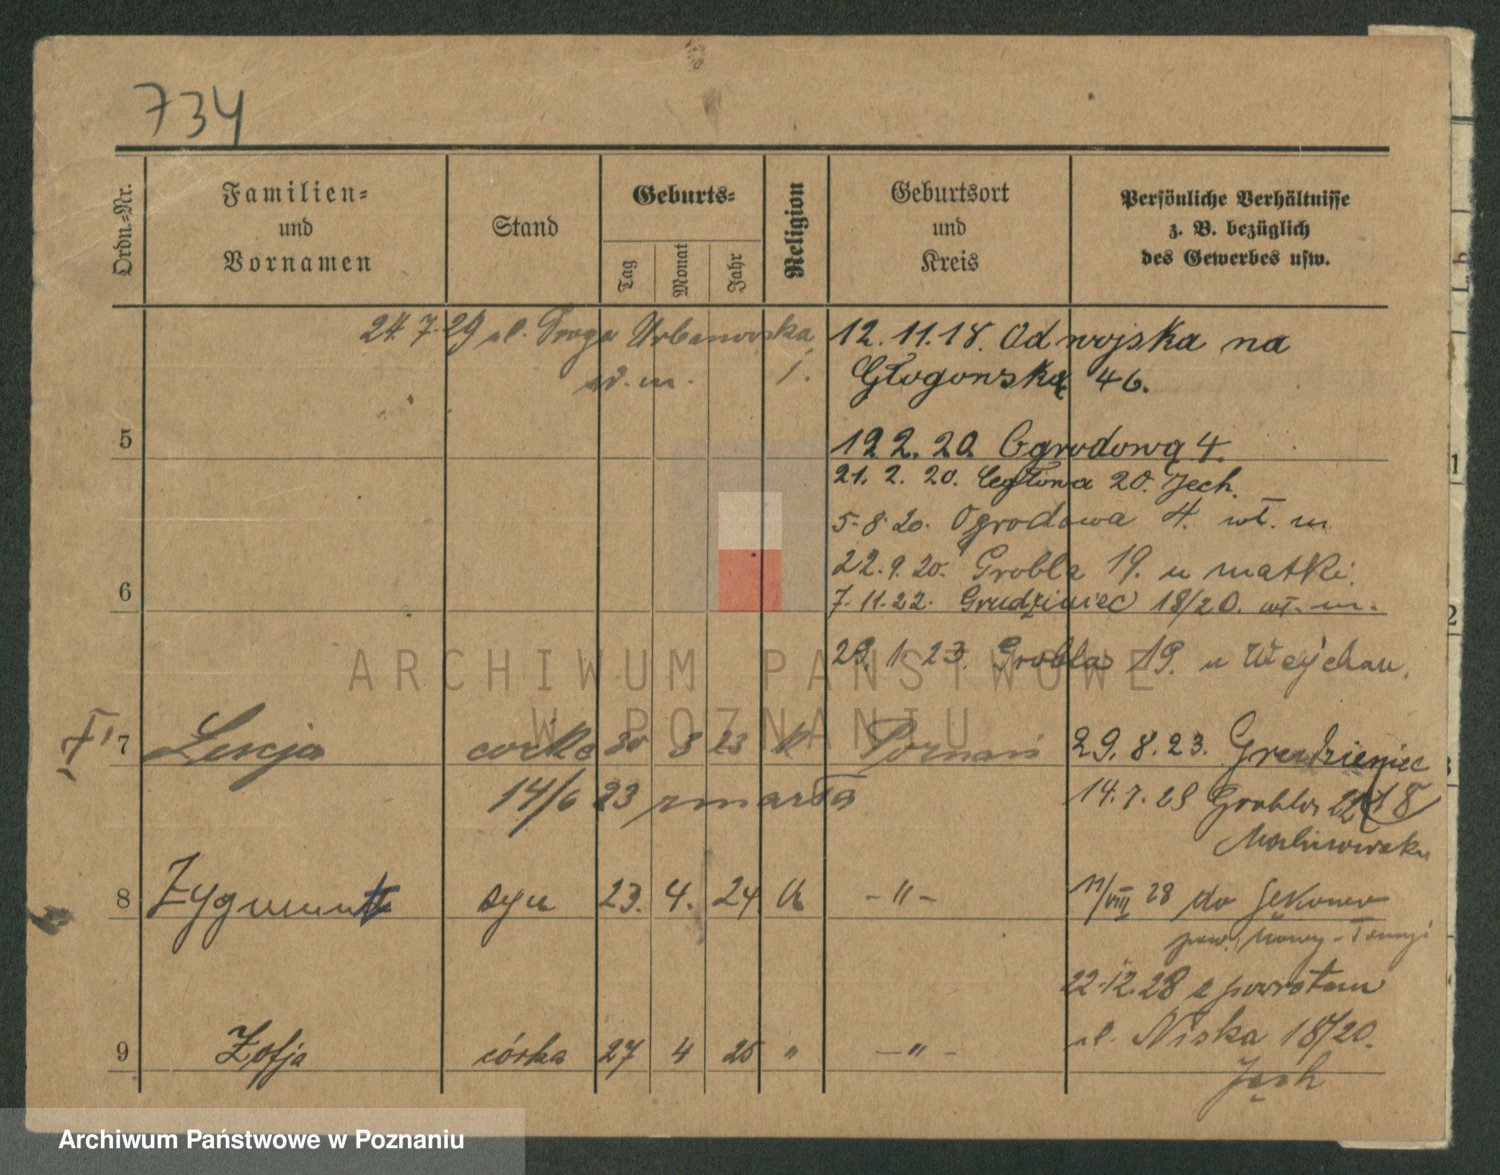 734
Ordn.-Nr.
Familien-
und
Vornamen
Stand
Geburts-
Tag
Monat
Jahr
Religion
Geburtsort
und
Kreis
Persönliche Verhältnisse
z. B. bezüglich
des Gewerbes usw.
24.7.29 ul. Droga Urbanowska
w. m. 1.
12.11.18. Od wojska na
Głogowską 46.
5
12 2. 20. Ogrodową 4.
21. 2. 20. Cegłowa 20. Jech.
5-8-20. Ogrodowa 4. wł. m.
22.9.20. Grobla 19. u matki.
6
7.11.22. Grudziniec 18/20. wł. m.
29.1.23. Grobla 19. u Weychan.
7 córka 30 8 23 k Poznań 29.8.23. Grudzieniec
14/6 23 zmarła
14.7.28 Grobla
8 Zygmunt syn 23. 4. 24. k -"- 11/VIII 28 do
pow. Nowy-Tomyśl
22.12.28 z powrotem
ul. Niska 18/20.
9 Zofja córka 27 4 25 " -"-
ARCHIWUM PAŃSTWOWE
W POZNANIU
Archiwum Państwowe w Poznaniu